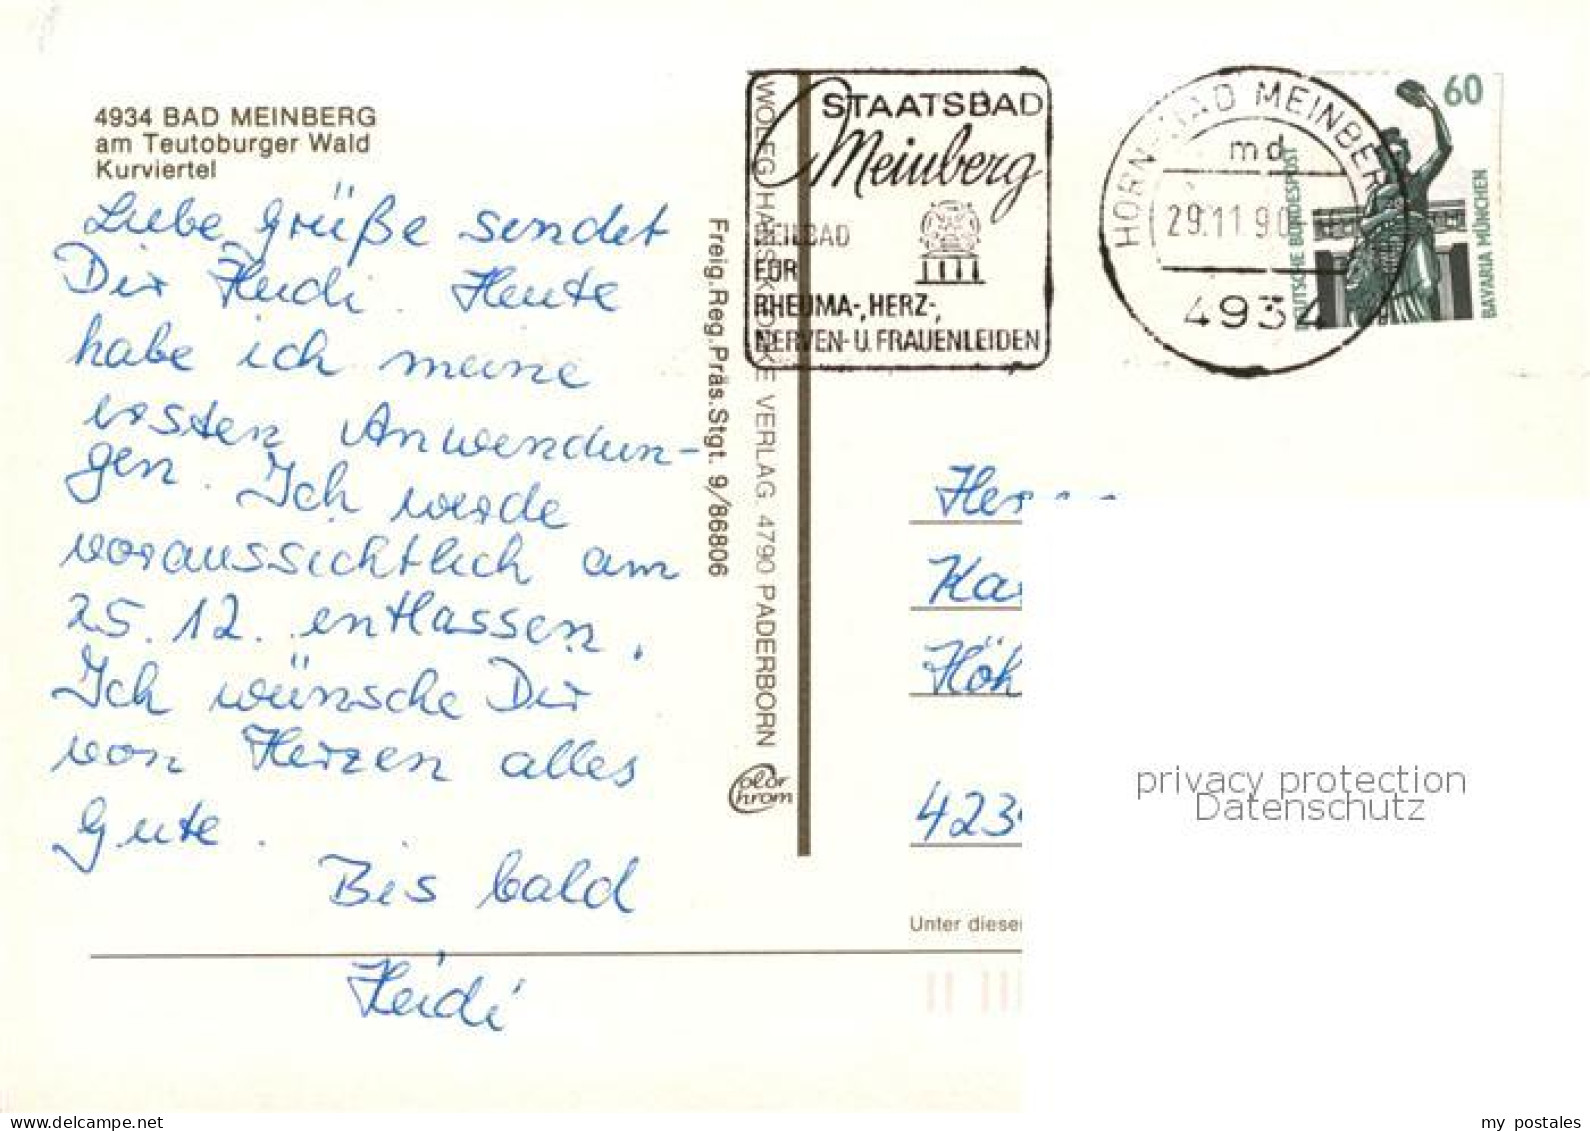 4934 BAD MEINBERG
am Teutoburger Wald
Kurviertel
Liebe Grüße sendet
Dir Heidi. Heute
habe ich meine
ersten Anwendun-
gen. Ich werde
voraussichtlich am
25.12. entlassen.
Ich wünsche Dir
von Herzen alles
Gute.
Bis bald
Heidi
Freig. Reg. Präs. Stgt. 9/86806
VERLAG 4790 PADERBORN
Color
Chrom
STAATSBAD
Meinberg
HEILBAD
FÜR
RHEUMA-, HERZ-,
NERVEN- U. FRAUENLEIDEN
HORN-BAD MEINBERG
md
29.11.90
4934
60
DEUTSCHE BUNDESPOST
BAVARIA MÜNCHEN
423
Unter diese
privacy protection
Datenschutz
delcampe.net
my_postales